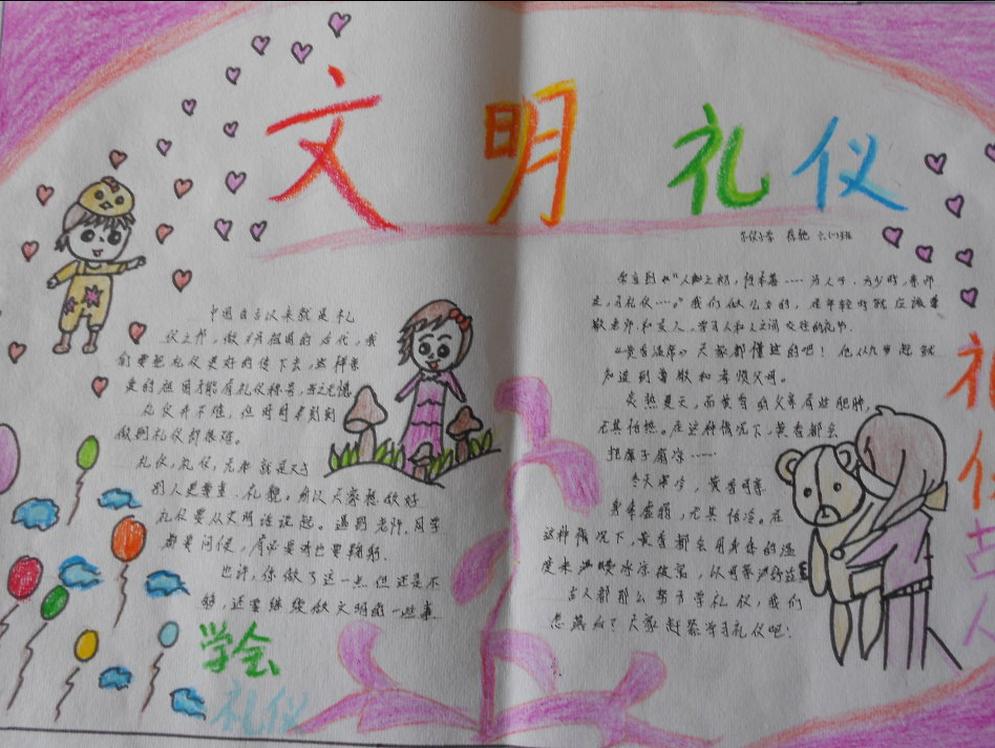 文明礼仪
六(一)班
中国自古以来就是礼
仪之邦，做为祖国的后代，我
们要把礼仪更好的传下去，这样亲
爱的祖国才能有礼仪称号，
礼仪并不难，但时时刻刻
做到礼仪却很难。
礼仪，礼仪，元 就是对
别人要尊重、礼貌。所以大家想做好
礼仪要从文明话说起。遇到老师、同学
都要问候，
也许，你做了这一点但还是不
够，还要继续做文明的一些事
学会
礼仪
"人之初，性本善……为人子，方少时，亲师
友，习礼仪……"我们做公主的，在年轻时就应该尊
敬老师和友人，学习人和人之间交往的礼节。
《黄香温席》大家都懂这的吧！他从九岁起就
知道到尊敬和孝顺父母。
炎热夏天，而黄香的父亲有些肥胖，
尤其怕热。在这种情况下，黄香都会
把席子扇凉……
冬天寒冷，黄香母亲
身体虚弱，尤其怕冷。在
这种情况下，黄香都会用身体的温
度来 暖冰凉被窝，
古人都那么努力学礼仪，我们
怎 ？大家赶紧学习礼仪吧！
礼
仪
古
人